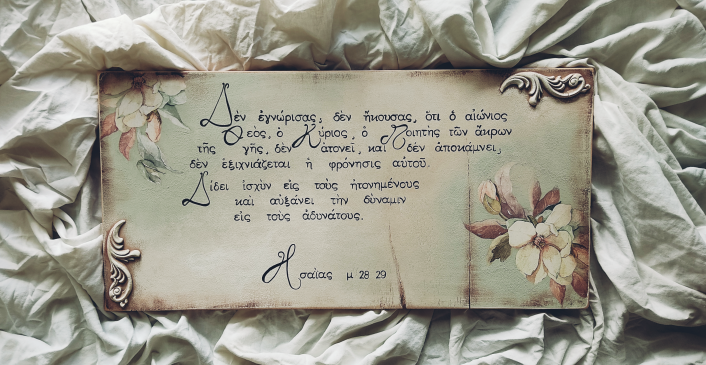 Δὲν ἐγνώρισας; δὲν ἤκουσας, ὅτι ὁ αἰώνιος
Θεὸς, ὁ Κύριος, ὁ Ποιητὴς τῶν ἄκρων
τῆς γῆς, δὲν ἀτονεῖ, καὶ δὲν ἀποκάμνει;
δὲν ἐξιχνιάζεται ἡ φρόνησις αὐτοῦ.
Δίδει ἰσχὺν εἰς τοὺς ἠτονημένους
καὶ αὐξάνει τὴν δύναμιν
εἰς τοὺς ἀδυνάτους.
Ησαΐας μ 28 29